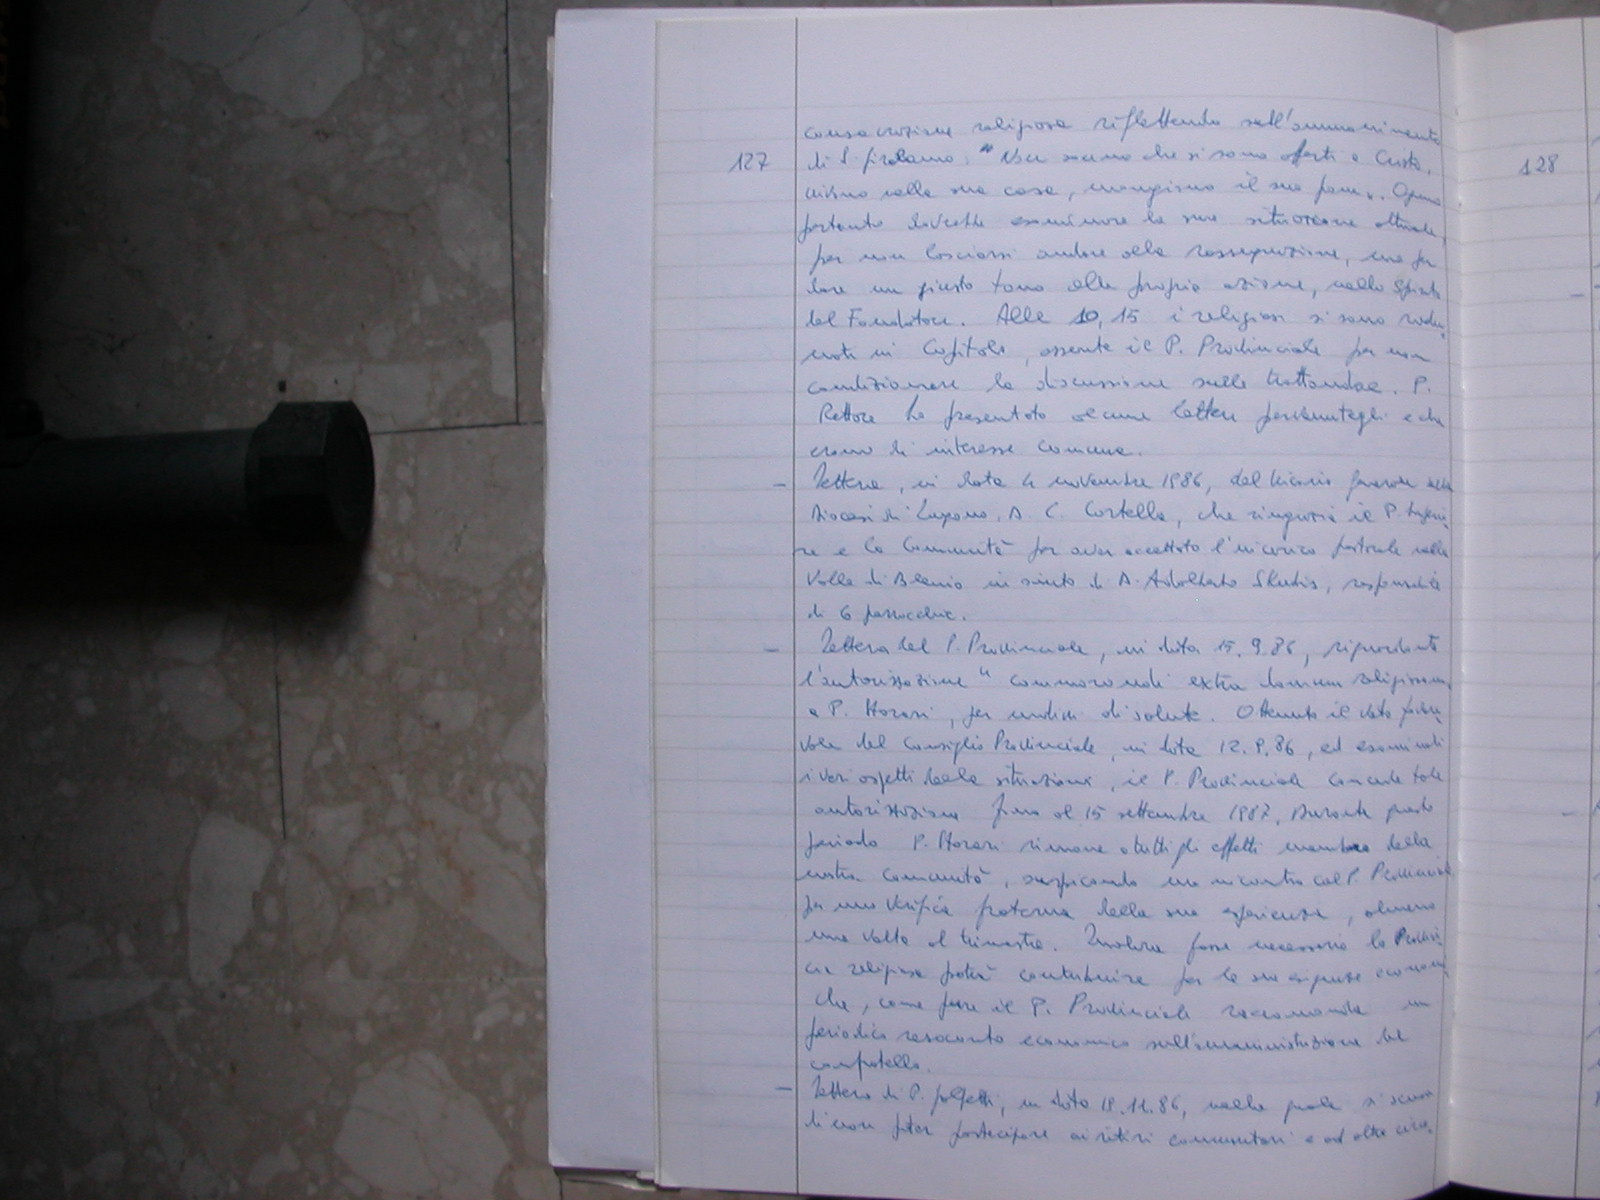 consacrazione religiosa riflettendo sull'ammonimento
127
di S. Girolamo: "Non sanno che si sono offerti a Cristo,
128
vivono nella sua casa, mangiano il suo pane". Ognuno
pertanto dovrebbe esaminare la sua situazione attuale,
per non lasciarsi andare alla rassegnazione, ma per
dare un giusto tono alla propria azione, nello Spirito
del Fondatore. Alle 10,15 i religiosi si sono radu-
nati in Capitolo, assente il P. Provinciale per non
condizionare la discussione sulle trattande. P.
Rettore ha presentato alcune lettere pervenutegli e che
erano di interesse comune.
- Lettera, in data 4 novembre 1986, del Vicario generale della
Diocesi di Lugano, D. C. Cortella, che ringrazia il P. Superio-
re e la Comunità per aver accettato l'incarico pastorale nella
Valle di Blenio in aiuto di D. Adalberto, responsabile
di 6 parrocchie.
- Lettera del P. Provinciale, in data 15.9.86, riguardante
l'autorizzazione " commorandi extra domum religiosam
a P. , per motivi di salute. Ottenuto il voto favore-
vole del Consiglio Provinciale, in data 12.9.86, ed esaminati
i vari aspetti della situazione, il P. Provinciale concede tale
autorizzazione fino al 15 settembre 1987. Durante questo
periodo P. rimane a tutti gli effetti membro della
nostra comunità, auspicando un incontro col P. Provinciale
per una verifica fraterna della sua esperienza, almeno
una volta al trimestre. Qualora fosse necessario la Provin-
cia religiosa potrà contribuire per le sue esigenze economi-
che, come pure il P. Provinciale raccomanda un
periodico resoconto economico sull'amministrazione del
confratello.
- Lettera di P., in data 18.11.86, nella quale si scusa
di non poter partecipare ai ritiri comunitari e ad altre